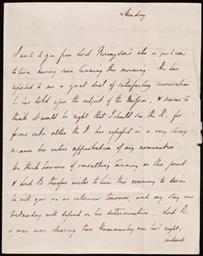 Monday
I wrote to you from Lord Palmerston's who is just come
to town having seen Canning this morning. He has
reported to me a great deal of satisfactory conversation
he has held upon the subject of the Mission, & seems to
think it would be right that I should see the K. for
form's sake altho' the K. has expressed in a very strong
manner his entire approbation of my nomination
He thinks however of consulting Canning on this point
& Lord B. therefore writes to him this evening to desire
he will give me an interview tomorrow and my stay over
Wednesday will depend on his determination. Lord B.
is even more cheering than Granville was last night,
indeed